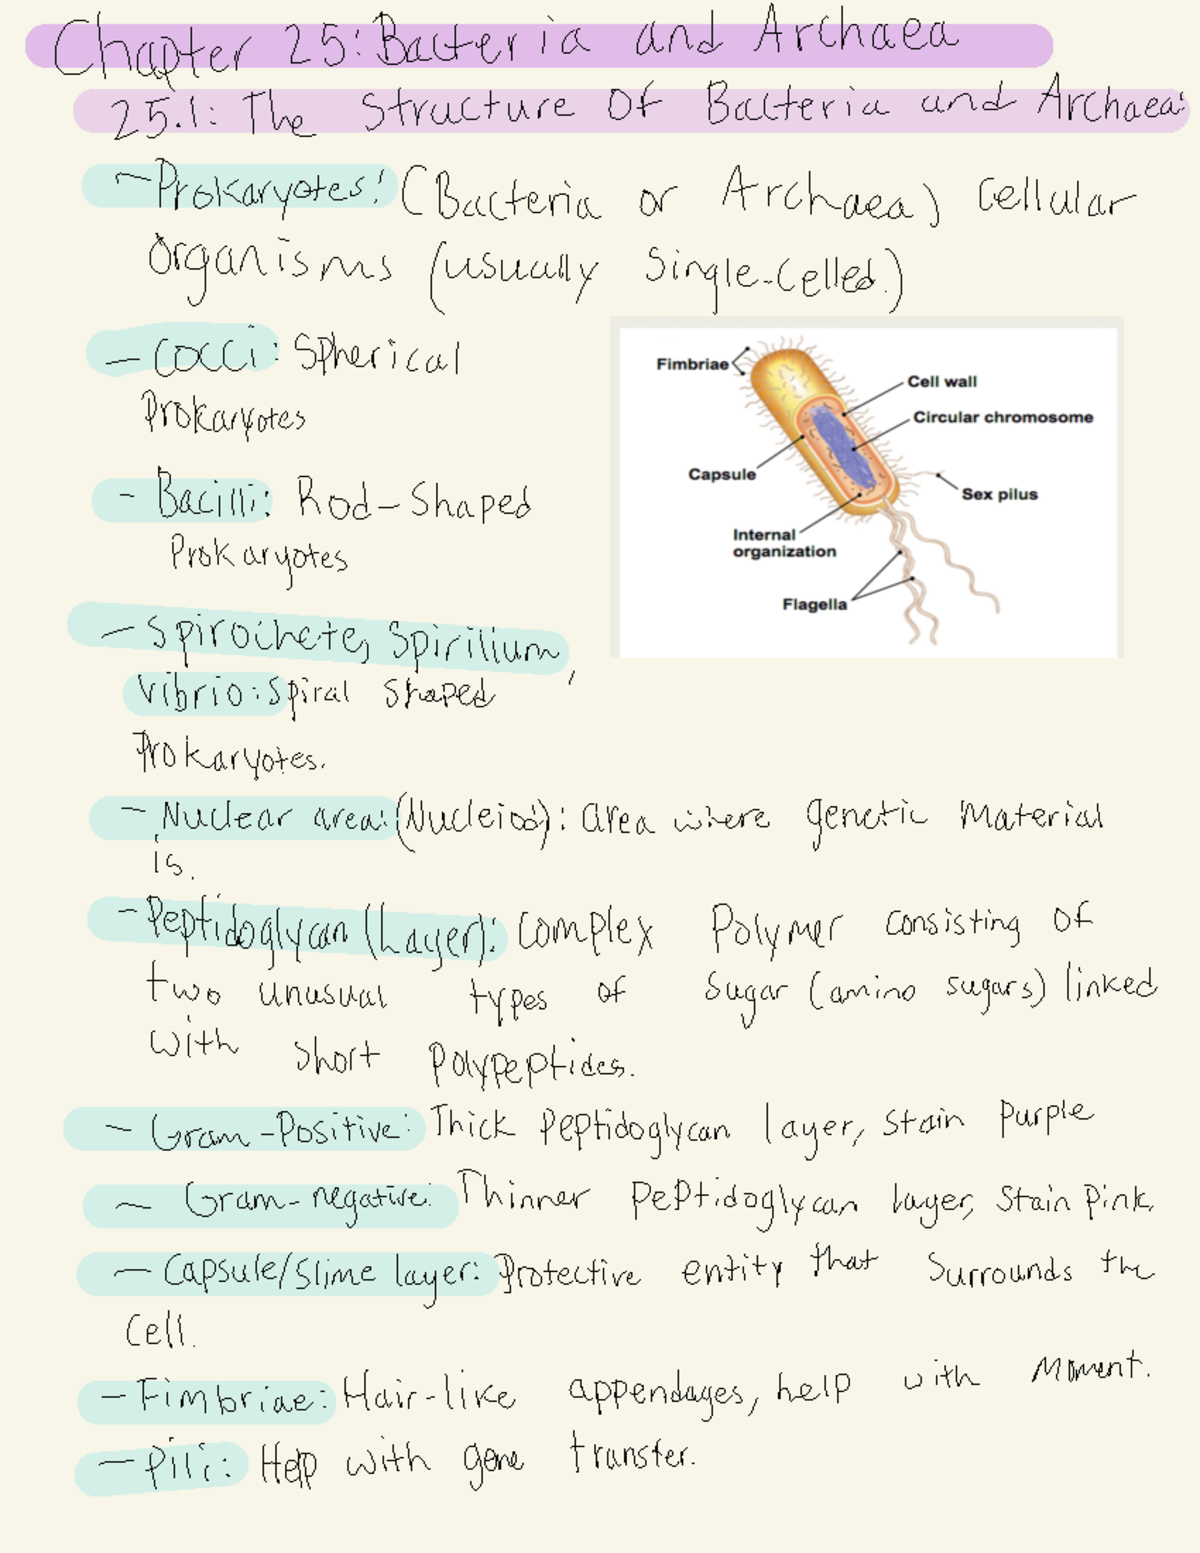 Chapter 25: Bacteria and Archaea
25.1: The Structure Of Bacteria and Archaea:
~Prokaryotes: (Bacteria or Archaea) Cellular
Organisms (usually Single-Celled.)
- Cocci: Spherical
Prokaryotes
- Bacilli: Rod-Shaped
Prokaryotes
- Spirochete, Spirillium,
Vibrio: Spiral Shaped
Prokaryotes.
Fimbriae
Cell wall
Circular chromosome
Capsule
Sex pilus
Internal
organization
Flagella
- Nuclear area: (Nucleiod): area where genetic Material
is.
- Peptidoglycan (Layer): Complex Polymer consisting of
two unusual types of Sugar (amino sugars) linked
with short Polypeptides.
- Gram-Positive: Thick Peptidoglycan layer, Stain Purple
~ Gram-negative: Thinner Peptidoglycan layer, Stain Pink.
- Capsule/Slime layer: Protective entity that Surrounds the
Cell.
- Fimbriae: Hair-like appendages, help with Moment.
- Pili: Help with gene transfer.